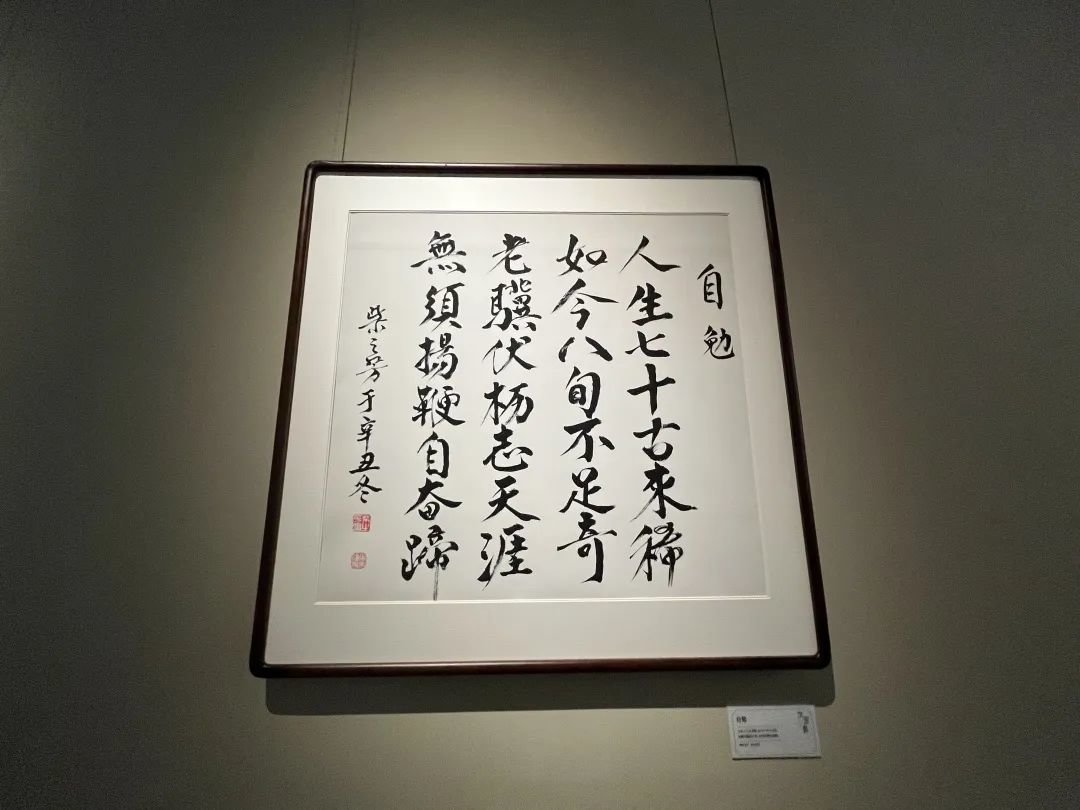 自勉
人生七十古來稀
如今八旬不足奇
老驥伏枥志天涯
無須揚鞭自奋蹄
柴之芳于辛丑冬
自勉